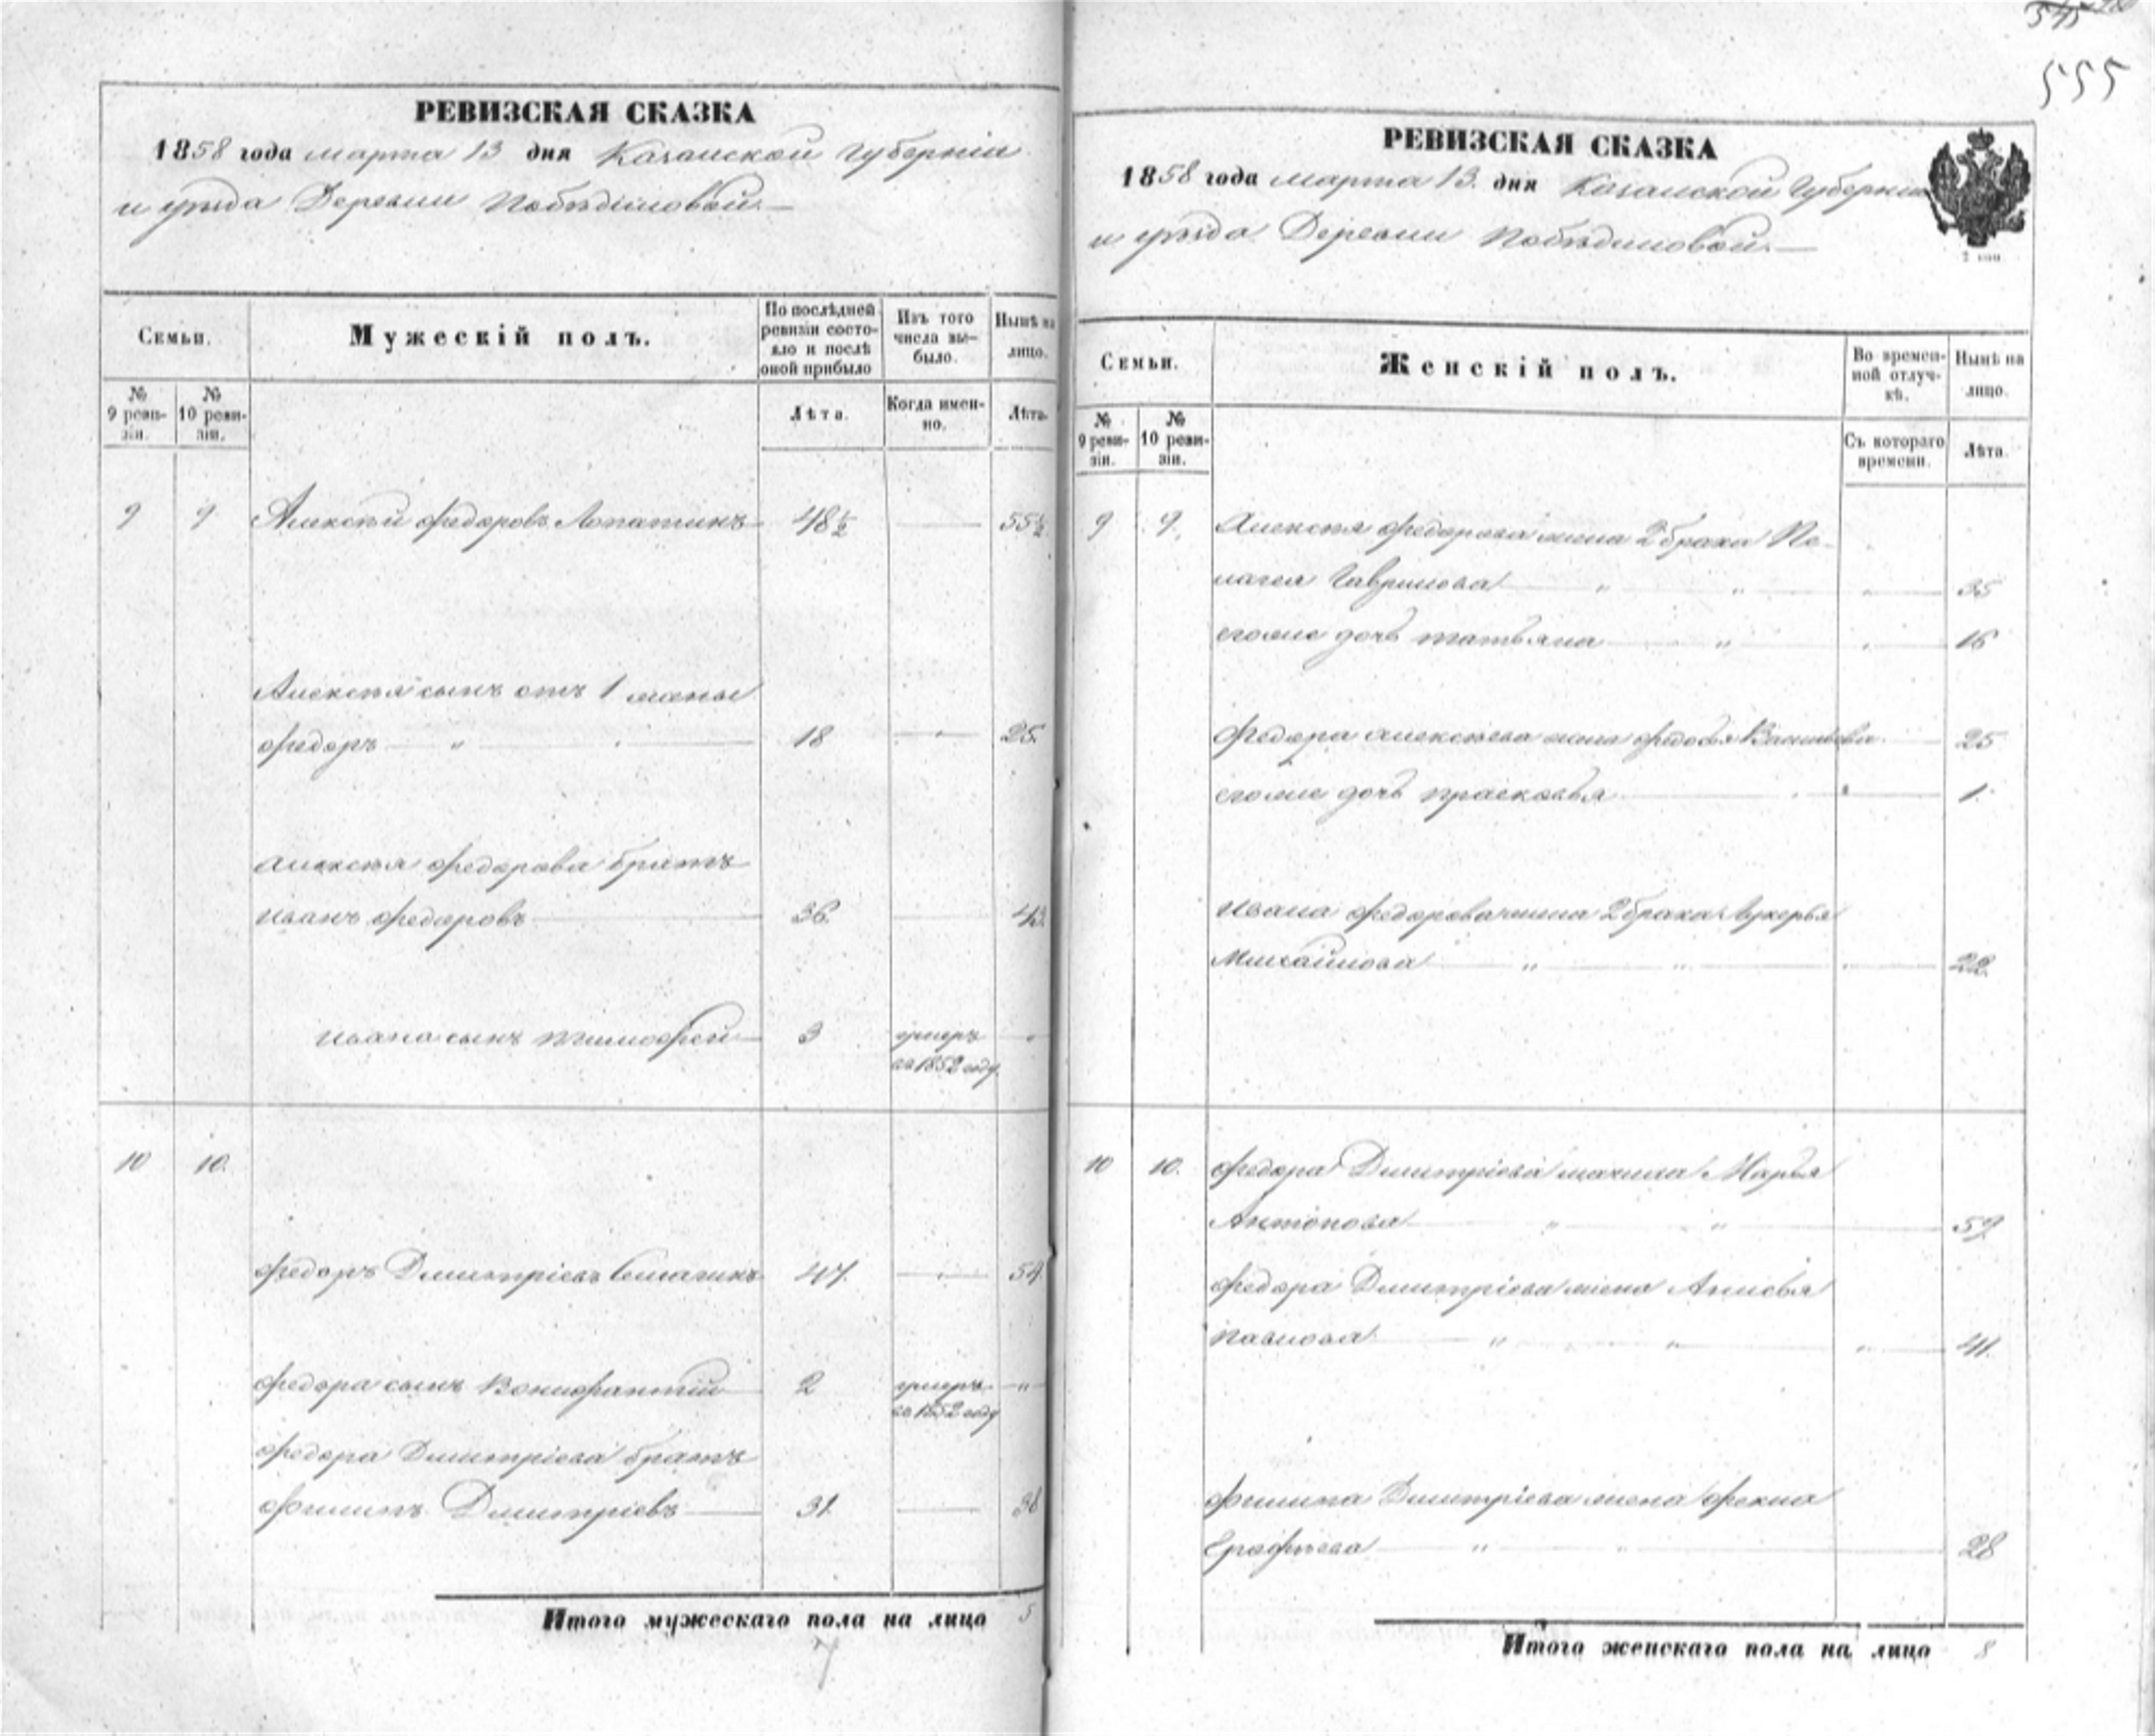 555
РЕВИЗСКАЯ СКАЗКА
1858 года марта 13 дня Казанской Губерніи
и уезда Деревни Победиловой.
Семьи.
Мужескій полъ.
По послѣдней ревизіи состояло и послѣ оной прибыло
Изъ того числа выбыло.
Нынѣ на лицо.
№ 9 ревизіи.
№ 10 ревизіи.
Лѣта.
Когда именно.
Лѣта.
9 9 Алексѣй Федоровъ Лопатинъ 48½ 55½
Алексѣя сынъ отъ 1 жены
Федоръ 18 25.
Алексѣя Федорова братъ
Иванъ Федоровъ 36. 43.
Ивана сынъ Тимофей 3 умеръ
въ 1852 году
10 10.
Федоръ Дмитріевъ 47. 54
Федора сынъ Вонифантій 2 умеръ
въ 1852 году
Федора Дмитріева братъ
Филипъ Дмитріевъ 31. 38
Итого мужескаго пола на лицо 5
7
РЕВИЗСКАЯ СКАЗКА
1858 года марта 13. дня Казанской Губерніи
и уезда Деревни Победиловой.
Семьи.
Женскій полъ.
Во временной отлучкѣ.
Нынѣ на лицо.
№ 9 ревизіи.
№ 10 ревизіи.
Съ котораго времени.
Лѣта.
9 9. Алексѣя Федорова жена 2 брака Пе-
лагея Гаврилова 35
егоже дочь Татьяна 16
Федора Алексѣева жена Федосья Васильева 25
егоже дочь Прасковья 1.
Ивана Федорова жена 2 брака Лукерья
Михайлова 22.
10 10. Федора Дмитріева мачиха Марья
Антонова 59
Федора Дмитріева жена Анисья
Павлова 41.
Филипа Дмитріева жена Фекла
Ерофѣева 28
Итого женскаго пола на лицо 8